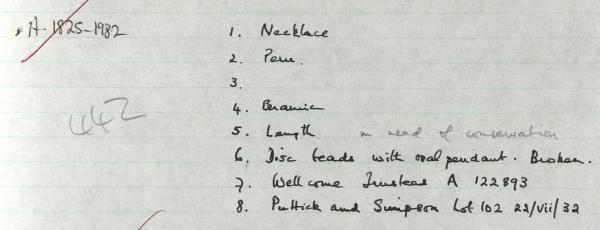 A. 1825-1982
1. Necklace
2. Peru.
3.
442
4. Ceramic
5. Length in need of conservation
6. Disc beads with oval pendant. Broken.
7. Wellcome Trustees A 122893
8. Puttick and Simpson Lot 102 22/vii/32